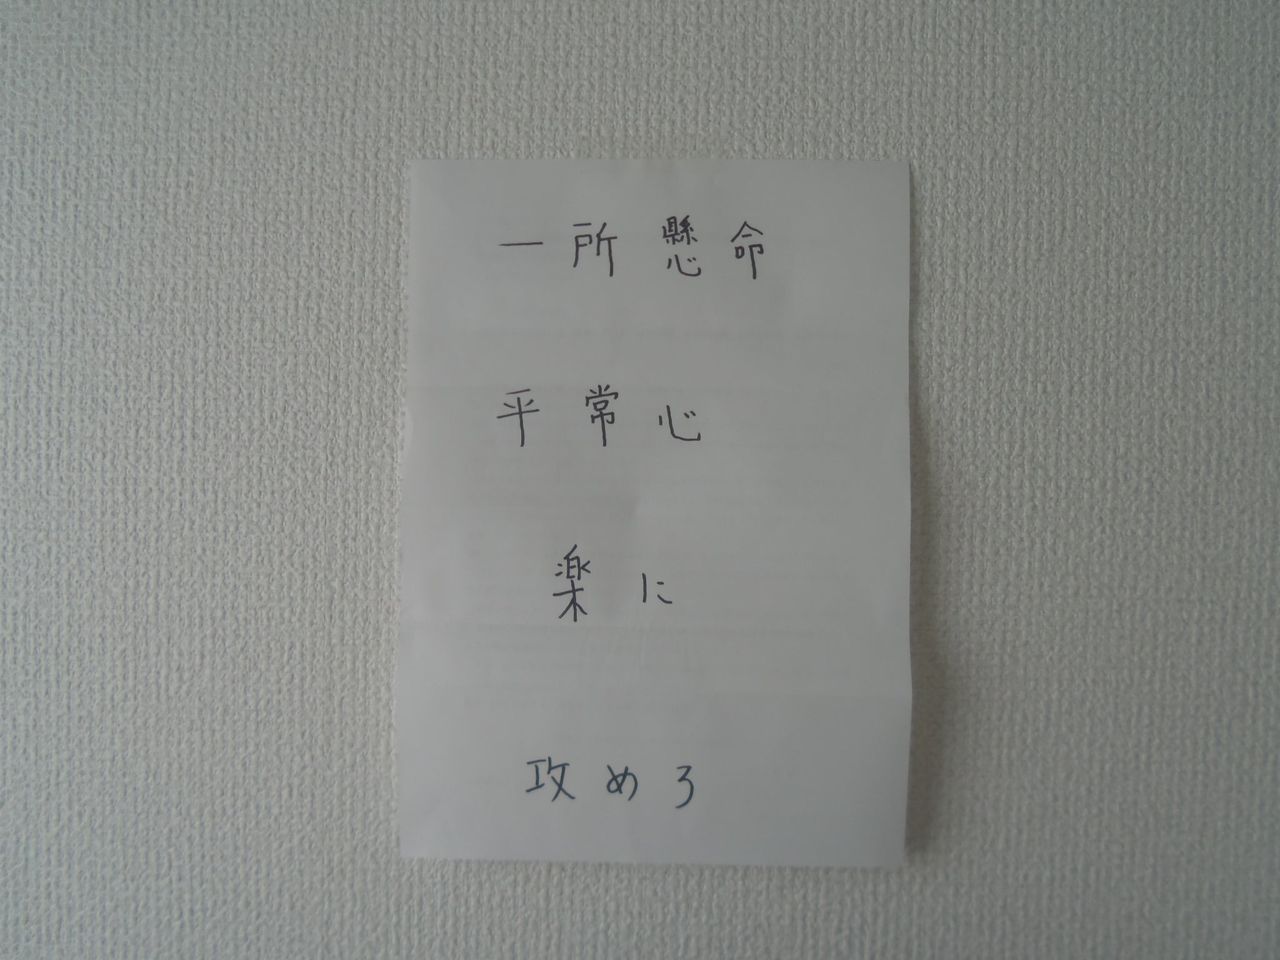 一所懸命
平常心
楽に
攻めろ